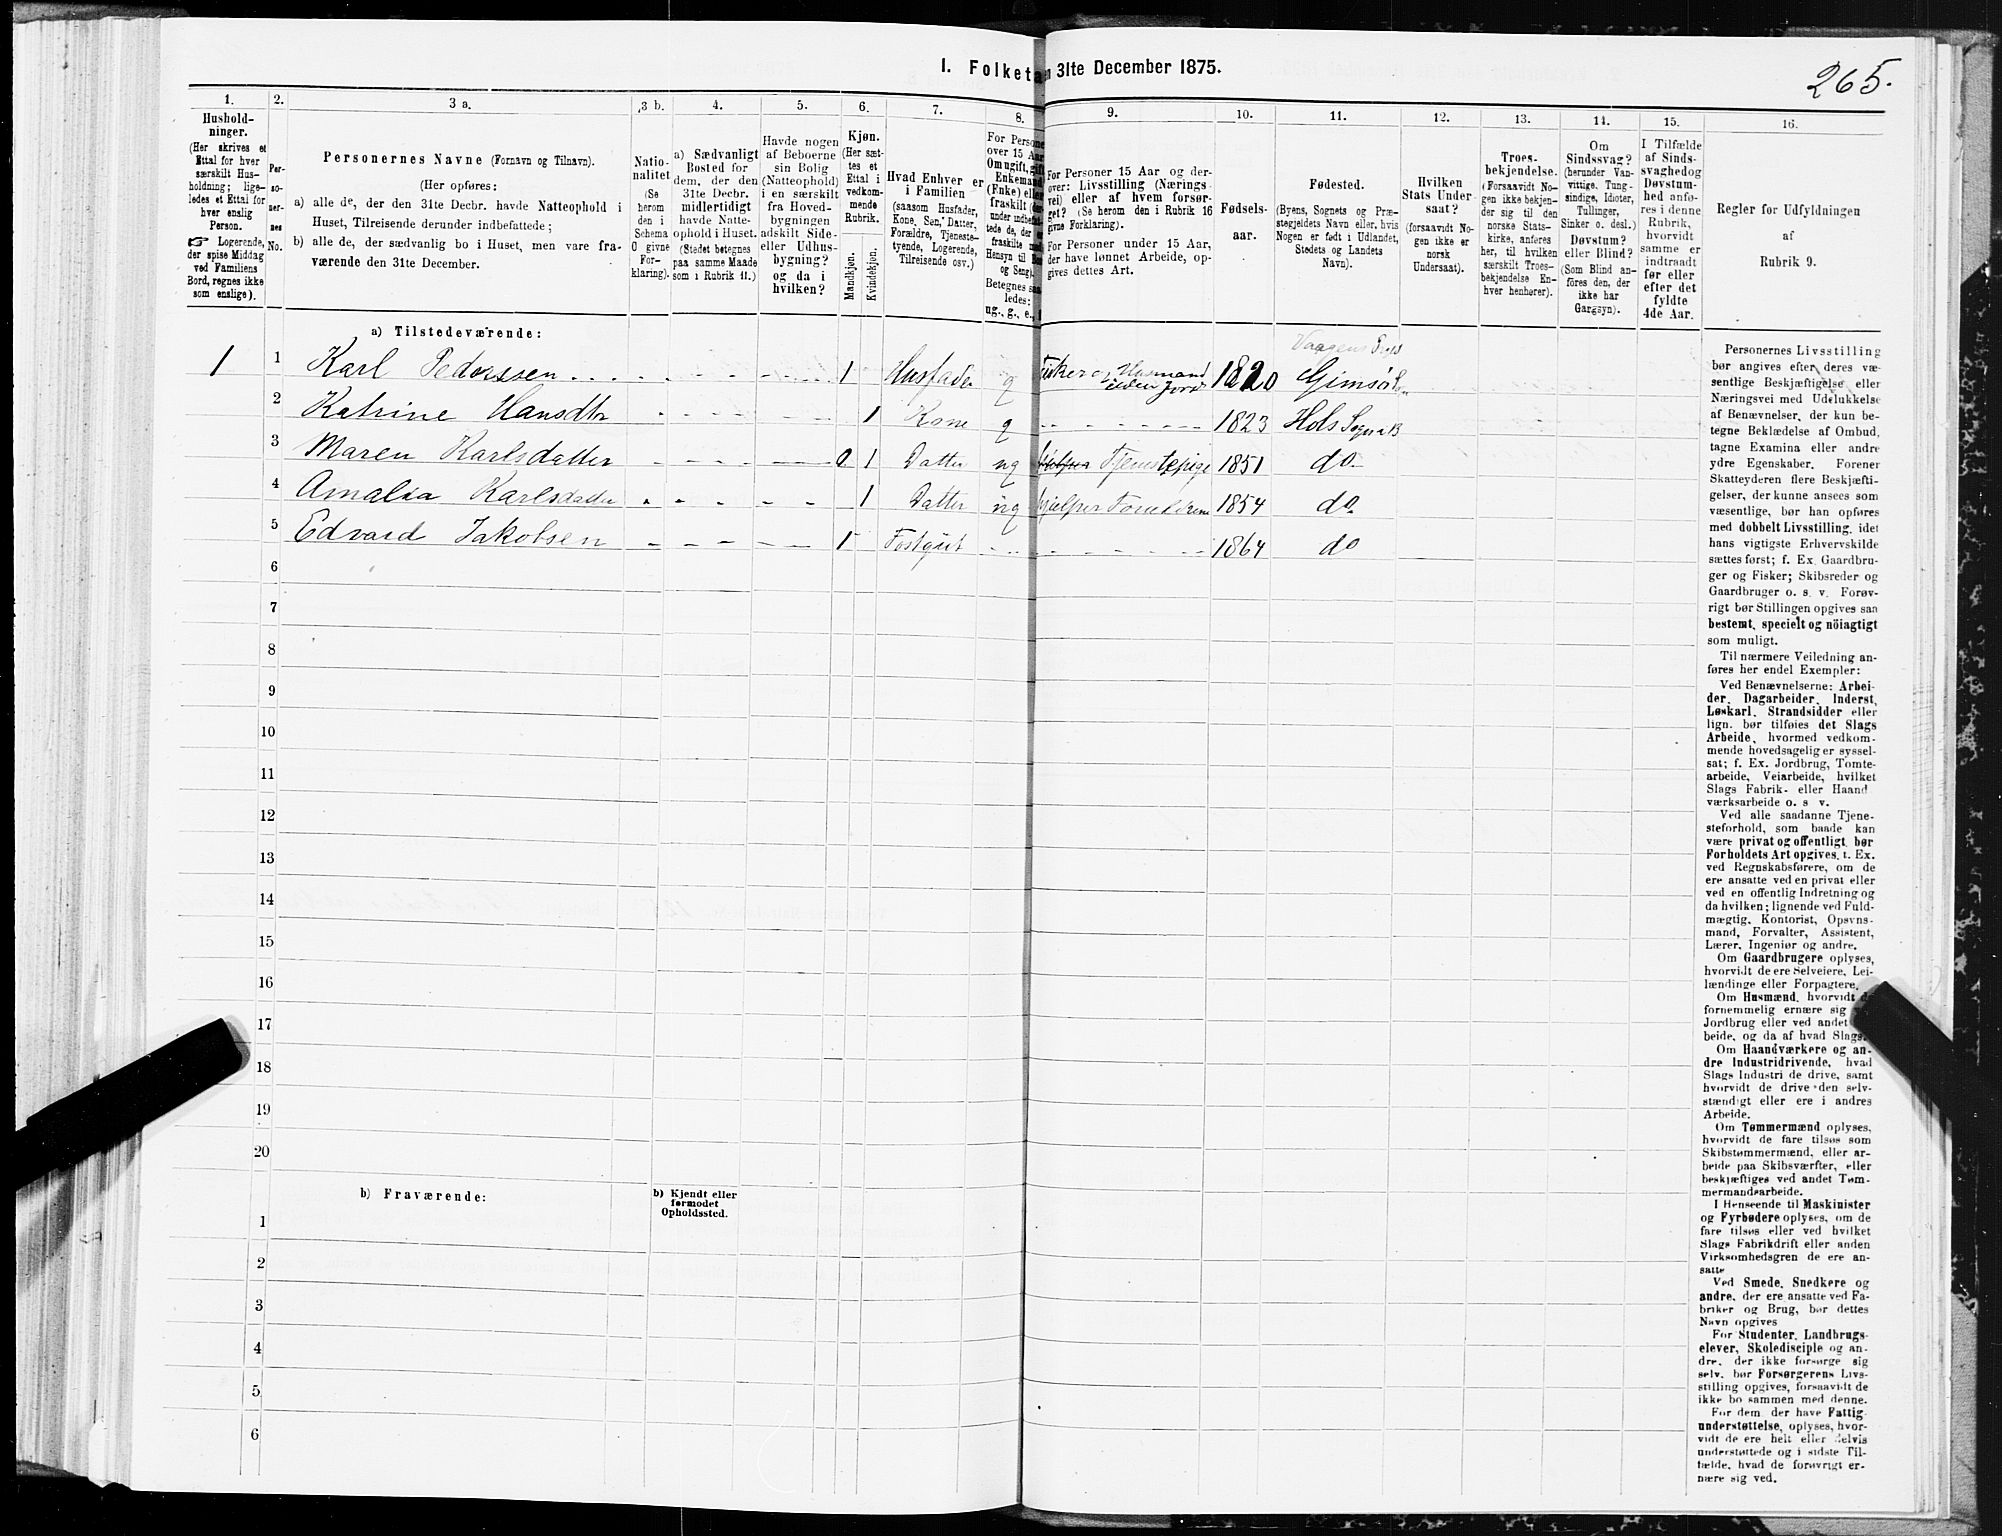 I. Folketa en 31te December 1875.
265.
1. 2. 3 a. 3 b. 4. 5. 6. 7. 8. 9. 10. 11. 12. 13. 14. 15. 16.
Hushold-
ninger.
(Her skrives et
Ettal for hver
særskilt Hus-
holdning; lige-
ledes et Ettal for
hver enslig
Person.
☞ Logerende,
der spise Middag
ved Familiens
Bord, regnes ikke
som enslige).
Per-
so-
ner-
nes
No.
Personernes Navne (Fornavn og Tilnavn).
(Her opføres:
a) alle de, der den 31te Decbr. havde Natteophold i
Huset, Tilreisende derunder indbefattede;
b) alle de, der sædvanlig bo i Huset, men vare fra-
værende den 31te December.
Natio-
nalitet
(Se
herom
den i
Schema
O givne
For-
klaring).
a) Sædvanligt
Bosted for
dem, der den
31te Decbr.
midlertidigt
havde Natte-
ophold i Huset.
(Stedet betegnes
paa samme Maade
som i Rubrik 11.)
Havde nogen
af Beboerne
sin Bolig
(Natteophold)
i en særskilt
fra Hoved-
bygningen
adskilt Side-
eller Udhus-
bygning?
og da i
hvilken?
Kjøn.
(Her sæt-
tes et
Ettal i
vedkom-
mende
Rubrik.
Mandkjøn.
Kvindekjøn.
Hvad Enhver er
i Familien
(saasom Husfader,
Kone, Søn, Datter,
Forældre, Tjeneste-
tyende, Logerende,
Tilreisende osv.)
For Persone
over 15 Aar
Om ugift, gift
Enkemand
(Enke) eller
fraskilt (her-
under indbefat-
tede de, der er
fraskilte med
Hensyn til Bord
og Seng).
Betegnes saa-
ledes:
ug., g., e.,
For Personer 15 Aar og der-
over: Livsstilling (Nærings-
vei) eller af hvem forsør-
get? (Se herom den i Rubrik 16
givne Forklaring).
For Personer under 15 Aar,
der have lønnet Arbeide, op-
gives dettes Art.
Fødsels-
aar.
Fødested.
(Byens, Sognets og Præ-
stegjeldets Navn eller, hvis
Nogen er født i Udlandet,
Stedets og Landets
Navn).
Hvilken
Stats Under-
saat?
(forsaavidt No-
gen ikke er
norsk
Undersaat).
Troes-
bekjendelse.
(Forsaavidt No-
gen ikke bekjen-
der sig til den
norske Stats-
kirke, anføres
her, til hvilken
særskilt Troes-
bekjendelse En-
hver henhører).
Om
Sindssvag?
(herunder Van-
vittige, Tung-
sindige, Idioter,
Tullinger,
Sinker o. desl.)
Døvstum?
eller Blind?
(Som Blind an-
føres den, der
ikke har
Gangsyn).
I Tilfælde
af Sinds-
svaghed og
Døvstum-
hed anfø-
res i denne
Rubrik,
hvorvidt
samme er
indtraadt
før eller
efter det
fyldte
4de Aar.
Regler for Udfyldningen
af
Rubrik 9.
a) Tilstedeværende:
1 1 Karl Pederssen 1 Husfader g Fisker og Husmand uden Jord 1820 Gimsø
2 Katrine Hansdtr 1 Kone g 1823 Hols Sogn
3 Maren Karlsdatter 0 1 Datter ug Tjenstepige 1851 do
4 Amalia Karlsdatter 1 Datter ug hjælper Forældrene 1854 do
5 Edvard Jakobsen 1 Fostgut 1864 do
6
7
8
9
10
11
12
13
14
15
16
17
18
19
20
b) Fraværende:
b) Kjendt eller
formodet
Opholdssted.
1
2
3
4
5
6
Personernes Livsstilling
bør angives efter deres væ-
sentlige Beskjæftigelse eller
Næringsvei med Udelukkelse
af Benævnelser, der kun be-
tegne Beklædelse af Ombud,
tagne Examina eller andre
ydre Egenskaber. Forener
Skatteyderen flere Beskjæfti-
gelser, der kunne ansees som
væsentlige, bør han opføres
med dobbelt Livsstilling, idet
hans vigtigste Erhvervskilde
sættes først; f. Ex. Gaardbru-
ger og Fisker; Skibsreder og
Gaardbruger o. s. v. Forøv-
rigt bør Stillingen opgives saa
bestemt, specielt og nöiagtigt
som muligt.
Til nærmere Veiledning an-
føres her endel Exempler:
Ved Benævnelserne: Arbei-
der, Dagarbeider, Inderst,
Løskarl, Strandsidder eller
lign. bør tilføies det Slags
Arbeide, hvormed vedkom-
mende hovedsagelig er syssel-
sat; f. Ex. Jordbrug, Tomte-
arbeide, Veiarbeide, hvilket
Slags Fabrik- eller Haand
værksarbeide o. s v.
Ved alle saadanne Tjene-
steforhold, som baade kan
være privat og offentligt, bør
Forholdets Art opgives, t. Ex.
ved Regnskabsførere, om de
ere ansatte ved en privat eller
ved en offentlig Indretning og
da hvilken; lignende ved Fuld-
mægtig, Kontorist, Opsvns-
mand, Forvalter, Assistent,
Lærer, Ingeniør og andre.
Om Gaardbrugere oplyses,
hvorvidt de ere Selveiere, Lei-
lændinge eller Forpagtere.
Om Husmænd, hvorvidt de
fornemmelig ernære sig
Jordbrug eller ved andet
beide, og da af hvad Slags.
Om Haandværkere og an-
dre Industridrivende, hvad
Slags Industri de drive, samt
hvorvidt de drive den selv-
stændigt eller ere i andres
Arbeide.
Om Tømmermænd oplyses,
hvorvidt de fare tilsøs som
Skibstømmermænd, eller ar-
beide paa Skibsværfter, eller
beskjæftiges ved andet Tøm-
mermandsarbeide.
I Henseende til Maskinister
og Fyrbødere oplyses, om de
fare tilsøs eller ved hvilket
Slags Fabrikdrift eller anden
Virksomhedsgren de ere an-
satte
Ved Smede, Snedkere og
andre, der ere ansatte ved Fa-
briker og Brug, bør dettes
Navn opgives
For Studenter, Landbrugs-
elever, Skoledisciple og an-
dre, der ikke forsørge sig
selv, bør Forsørgerens Livs-
stilling opgives, forsaavidt de
ikke bo sammen med denne.
For dem, der have Fattig-
understøttelse, oplyses, hvor-
vidt de ere helt eller delvis
understøttede og i sidste Til-
fælde, hvad de forøvrigt er-
nære sig ved.